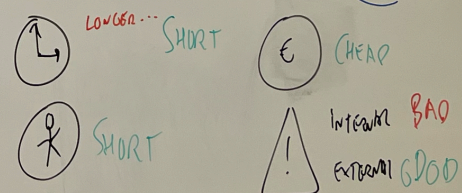 LONGER... SHORT
€ CHEAP
SHORT
! INTERNAL BAD
EXTERNAL GOOD